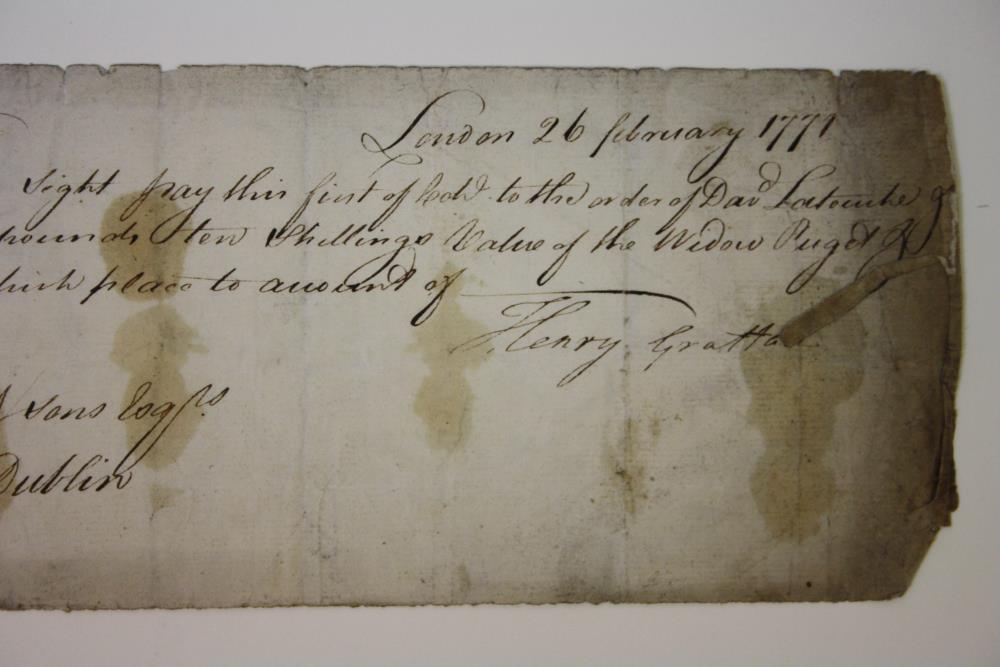 London 26 february 1771
Sight pay this first of to the order of Dav^d Latouche &
pounds ten Shillings Value of the Widow Puget &
which place to account of
Henry Grattan
& Sons Esqrs
Dublin